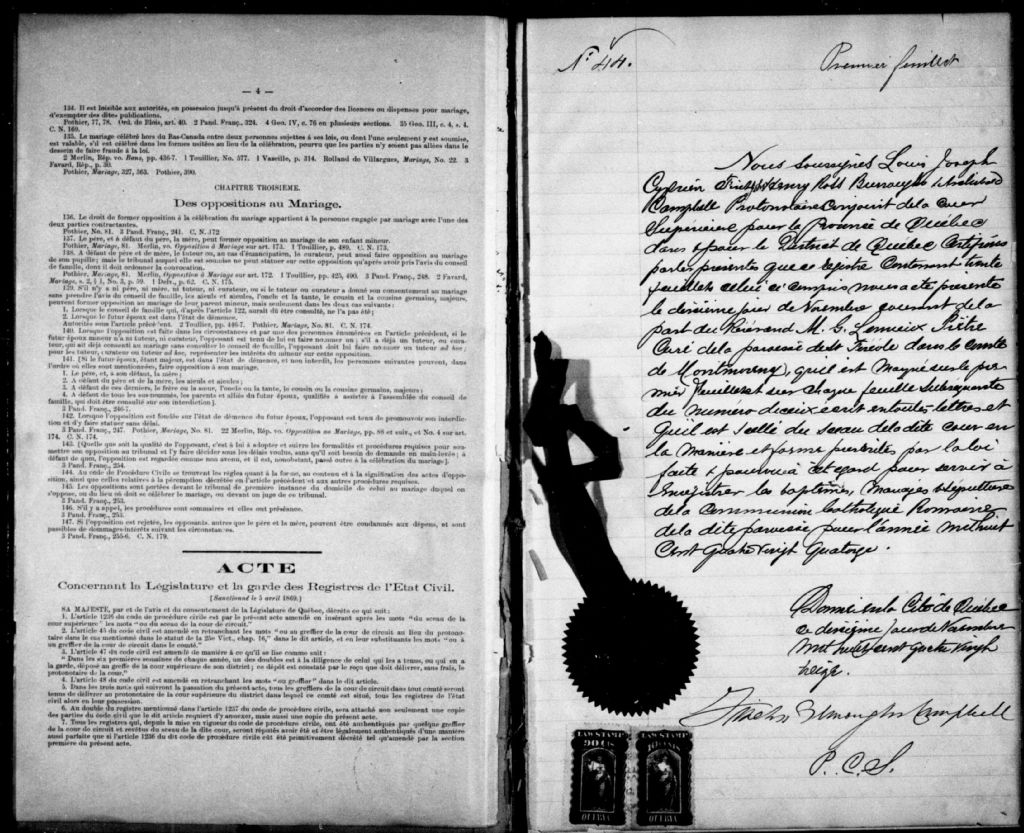 — 4 —
134. Il est loisible aux autorités, en possession jusqu'à présent du droit d'accorder des licences ou dispenses pour mariage,
d'exempter des dites publications.
Pothier, 77, 78. Ord. de Blois, art. 40. 2 Pand. Franç., 324. 4 Geo. IV, c. 76 en plusieurs sections. 35 Geo. III, c. 4, s. 4.
C. N. 169.
135. Le mariage célébré hors du Bas-Canada entre deux personnes sujettes à ses lois, ou dont l'une seulement y est soumise,
est valable, s'il est célébré dans les formes usitées au lieu de la célébration, pourvu que les parties n'y soient pas allées dans le
dessein de faire fraude à la loi.
2 Merlin, Rép. vo. Bans, pp. 436-7. 1 Touillier, No. 577. 1 Vaseille, p. 314. Rolland de Villargues, Mariage, No. 22. 3
Favard, Rép., p. 30.
Pothier, Mariage, 327, 363. Pothier, 390.
CHAPITRE TROISIEME.
Des oppositions au Mariage.
136. Le droit de former opposition à la célébration du mariage appartient à la personne engagée par mariage avec l'une des
deux parties contractantes.
Pothier, No. 81. 3 Pand. Franç., 241. C. N. 172
137. Le père, et à défaut du père, la mère, peut former opposition au mariage de son enfant mineur.
Pothier, Mariage, 81. Merlin, vo. Opposition à Mariage sur art. 173. 1 Touillier, p. 489. C. N. 173.
138. A défaut de père et de mère, le tuteur ou, au cas d'émancipation, le curateur, peut aussi faire opposition au mariage
de son pupille; mais le tribunal auquel elle est soumise ne peut statuer sur cette opposition qu'après avoir pris l'avis du conseil
de famille, dont il doit ordonner la convocation.
Pothier, Mariage, 81. Merlin, Opposition à Mariage sur art. 172. 1 Touillier, pp. 425, 490. 3 Pand. Franç., 248. 2 Favard,
Mariage, s. 2, § 1, No. 3, p. 59. 1 Delv., p. 62. C. N. 175.
139. S'il n'y a ni père, ni mère, ni tuteur, ni curateur, ou si le tuteur ou curateur a donné son consentement au mariage
sans prendre l'avis du conseil de famille, les aïeuls et aïeules, l'oncle et la tante, le cousin et la cousine germains, majeurs,
peuvent former opposition au mariage de leur parent mineur, mais seulement dans les deux cas suivants:
1. Lorsque le conseil de famille qui, d'après l'article 122, aurait dû être consulté, ne l'a pas été;
2. Lorsque le futur époux est dans l'état de démence.
Autorités sous l'article précé'ent. 2 Touillier, pp. 446-7. Pothier, Mariage, No. 81. C. N. 174.
140. Lorsque l'opposition est faite dans les circonstances et par une des personnes énumérées en l'article précédent, si le
futur époux mineur n'a ni tuteur, ni curateur, l'opposant est tenu de lui en faire nommer un; s'il a déjà un tuteur, ou cura-
teur, qui ait déjà consenti au mariage sans consulter le conseil de famille, l'opposant doit lui faire nommer un tuteur ad hoc;
pour les tuteur, curateur ou tuteur ad hoc, représenter les intérêts du mineur sur cette opposition.
141. [Si le futur époux, étant majeur, est dans l'état de démence, et non interdit, les personnes suivantes peuvent, dans
l'ordre où elles sont mentionnées, faire opposition à son mariage.
1. Le père, et, à son défaut, la mère;
2. A défaut du père et de la mère, les aïeuls et aïeules;
3. A défaut de ces derniers, le frère ou la sœur, l'oncle ou la tante, le cousin ou la cousine germains, majeurs;
4. A défaut de tous les sus-nommés, les parents et alliés du futur époux, qualifiés à assister à l'assemblée du conseil de
famille, qui doit être consulté sur son interdiction].
3 Pand. Franç., 246-7.
142. Lorsque l'opposition est fondée sur l'état de démence du futur époux, l'opposant est tenu de promouvoir son interdic-
tion et d'y faire statuer sans délai.
3 Pand. Franç., 247. Pothier, Mariage, No. 81. 22 Merlin, Rép. vo. Opposition au Mariage, pp. 88 et suiv., et No. 4 sur art.
174. C. N. 174.
143. [Quelle que soit la qualité de l'opposant, c'est à lui à adopter et suivre les formalités et procédures requises pour sou-
mettre son opposition au tribunal et l'y faire décider sous les délais voulus, sans qu'il soit besoin de demande en main-levée; à
défaut de quoi, l'opposition est regardée comme non avenue, et il est, nonobstant, passé outre à la célébration du mariage].
3 Pand. Franç., 254.
144. Au code de Procédure Civile se trouvent les règles quant à la forme, au contenu et à la signification des actes d'oppo-
sition, ainsi que celles relatives à la péremption décrétée en l'article précédent et aux autres procédures requises.
145. Les oppositions sont portées devant le tribunal de première instance du domicile de celui au mariage duquel on
s'oppose, ou du lieu où doit se célébrer le mariage, ou devant un juge de ce tribunal.
3 Pand. Franç., 253.
146. S'il y a appel, les procédures sont sommaires et elles ont préséance.
3 Pand. Franç., 253.
147. Si l'opposition est rejetée, les opposants, autres que le père et la mère, peuvent être condamnés aux dépens, et sont
passibles de dommages-intérêts suivant les circonstances.
3 Pand. Franç., 255-6. C. N. 179.
ACTE
Concernant la Législature et la garde des Registres de l'Etat Civil.
[Sanctionné le 5 avril 1869.]
SA MAJESTÉ, par et de l'avis et du consentement de la Législature de Québec, décrète ce qui suit:
1. L'article 1236 du code de procédure civile est par le présent acte amendé en insérant après les mots "du sceau de la
cour supérieure" les mots "ou du sceau de la cour de circuit."
2. L'article 45 du code civil est amendé en retranchant les mots "ou au greffier de la cour de circuit au lieu du protono-
taire dans le cas mentionné dans le statut de la 25e Vict., chap. 16," dans le dit article, et en leur substituant les mots "ou à
un greffier de la cour de circuit dans le comté."
3. L'article 47 du code civil est amendé de manière à ce qu'il se lise comme suit:
"Dans les six premières semaines de chaque année, un des doubles est à la diligence de celui qui les a tenus, ou qui en a
la garde, déposé au greffe de la cour supérieure de son district; ce dépôt est constaté par le reçu que doit délivrer, sans frais, le
protonotaire de la cour."
4. L'article 48 du code civil est amendé en retranchant les mots "ou greffier" dans le dit article.
5. Dans les trois mois qui suivront la passation du présent acte, tous les greffiers de la cour de circuit dans tout comté seront
tenus de délivrer au protonotaire de la cour supérieure du district dans lequel ce comté est situé, tous les registres de l'état
civil alors en leur possession.
6. Au double du registre mentionné dans l'article 1237 du code de procédure civile, sera attaché non seulement une copie
des parties du code civil que le dit article requiert d'y annexer, mais aussi une copie du présent acte.
7. Tous les registres qui, depuis la mise en vigueur du code de procédure civile, ont été authentiqués par quelque greffier
de la cour de circuit et revêtus du sceau de la dite cour, seront réputés avoir été et être légalement authentiqués d'une manière
aussi parfaite que si l'article 1236 du dit code de procédure civile eût été primitivement décrété tel qu'amendé par la section
première du présent acte.
No 44.
Premier feuillet
Nous soussignés Louis Joseph
Cyprien Fiset, Henry Ross Burroughs & Archibald
Campbell Protonotaire Conjoint de la Cour
Supérieure pour la Province de Québec
dans & pour le District de Québec Certifions
par les présentes que ce registre Contenant trente
feuillets celui ci compris nous a été présenté
le dixième jour de Novembre courant de la
part du Révérend M. G. Lemieux Prêtre
Curé de la paroisse de St Tréole dans le Comté
de Montmorency, qu'il est Marqué sur le pre
mier feuillet & sur chaque feuille subséquente
du numéro d'iceux écrit en toutes lettres et
Qu'il est Scellé du sceau de la dite Cour en
la Manière et forme prescrites par la loi
faite & pourvue à cet égard pour servir à
Enregistrer les baptêmes, Mariages & sépultures
de la Communion Catholique Romaine
de la dite paroisse pour l'année Mil huit
Cent Quatre Vingt Quatorze.
Donné en la Cité de Québec
ce dixième jour de Novembre
Mil huit Cent Quatre Vingt
treize.
Fiset Burroughs Campbell
P. C. S.
LAW STAMP
20 CTS
QUEBEC
LAW STAMP
10 CENTS
QUEBEC